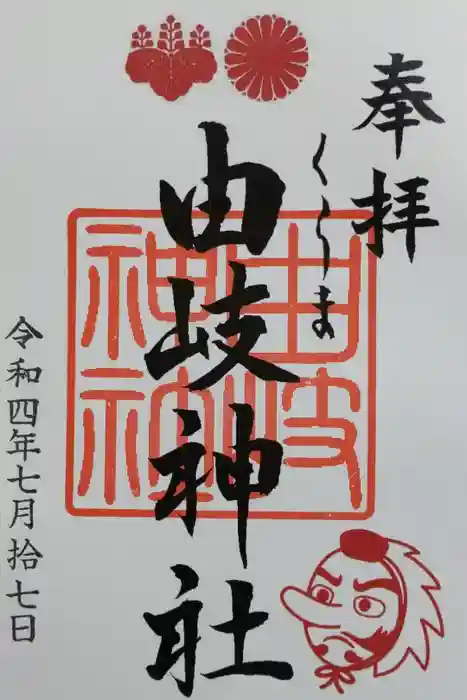 奉拝
くらま
由岐神社
由岐神社
令和四年七月拾七日